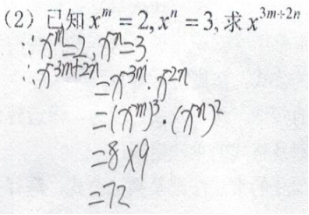 (2) 已知 xᵐ = 2, xⁿ = 3, 求 x³ᵐ⁺²ⁿ
∵ xᵐ=2, xⁿ=3
∴ x³ᵐ⁺²ⁿ
=x³ᵐ·x²ⁿ
=(xᵐ)³·(xⁿ)²
=8×9
=72